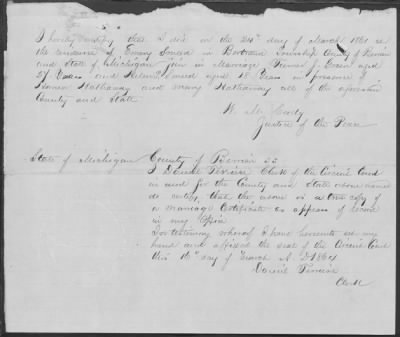 I hereby certify that I did on the 24th day of March 1861 at
the residence of Emory Smeed in Bertrand Township County of Berrien
and State of Michigan join in Marriage J. Green aged
27 Years and Helen Smeed aged 18 Years in presence of
Hathaway and Mary Hathaway all of the aforesaid
County and State
W. M.
Justice of the Peace
State of Michigan County of Berrien ss
I Daniel Terriere Clerk of the Circuit Court
in and for the County and State above named
do certify that the above is a true copy of
a marriage Certificate as appears of record
in my Office
In testimony whereof I have hereunto set my
hand and affixed the seal of the Circuit Court
this 16th day of March A. D. 1864
Daniel Terriere
Clerk